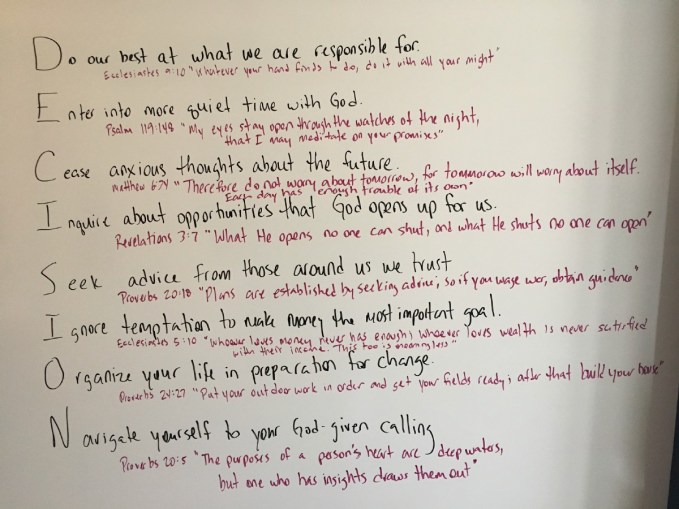 Do our best at what we are responsible for.
Ecclesiastes 9:10 "Whatever your hand finds to do, do it with all your might"
Enter into more quiet time with God.
Psalm 119:148 "My eyes stay open through the watches of the night,
that I may meditate on your promises"
Cease anxious thoughts about the future.
Matthew 6:34 "Therefore do not worry about tomorrow, for tommorow will worry about itself.
Each day has enough trouble of its own"
Inquire about opportunities that God opens up for us.
Revelations 3:7 "What He opens no one can shut, and what He shuts no one can open"
Seek advice from those around us we trust
Proverbs 20:18 "Plans are established by seeking advice; so if you wage war, obtain guidance"
Ignore temptation to make money the most important goal.
Ecclesiastes 5:10 "whoever loves money never has enough; whoever loves wealth is never satisfied
with their income. This too is meaningless"
Organize your life in preparation for change.
Proverbs 24:27 "Put your outdoor work in order and get your fields ready; after that build your house"
Navigate yourself to your God-given calling
Proverbs 20:5 "The purposes of a person's heart are deep waters,
but one who has insights draws them out"